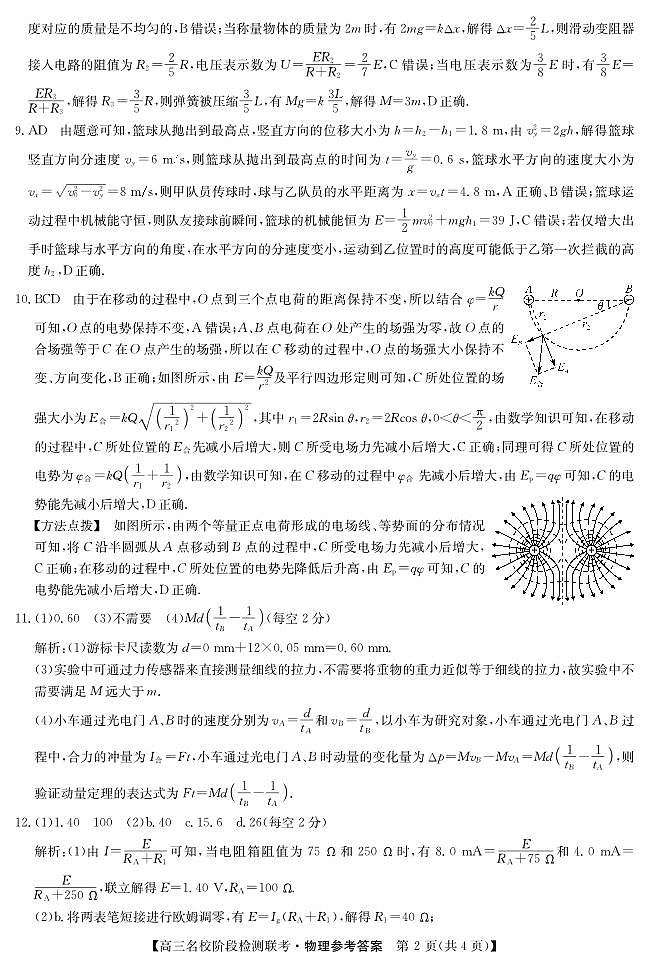 度对应的质量是不均匀的,B错误;当称量物体的质量为2m时,有2mg=kΔx,解得Δx=2/5L,则滑动变阻器
接入电路的阻值为R₂=2/5R,电压表示数为U=ER₂/(R+R₂)=2/7E,C错误;当电压表示数为3/8E时,有3/8E=
ER₃/(R+R₃),解得R₃=3/5R,则弹簧被压缩3/5L,有Mg=k 3L/5,解得M=3m,D正确.
9. AD 由题意可知,篮球从抛出到最高点,竖直方向的位移大小为h=h₂-h₁=1.8 m,由v_y²=2gh,解得篮球
竖直方向分速度v_y=6 m/s,则篮球从抛出到最高点的时间为t=v_y/g=0.6 s,篮球水平方向的速度大小为
vₓ=√(v₀²-v_y²)=8 m/s,则甲队员传球时,球与乙队员的水平距离为x=vₓt=4.8 m,A正确、B错误;篮球运
动过程中机械能守恒,则队友接球前瞬间,篮球的机械能恒为E=1/2mv₀²+mgh₁=39 J,C错误;若仅增大出
手时篮球与水平方向的角度,在水平方向的分速度变小,运动到乙位置时的高度可能低于乙第一次拦截的高
度h₂,D正确.
10. BCD 由于在移动的过程中,O点到三个点电荷的距离保持不变,所以结合φ=kQ/r
可知,O点的电势保持不变,A错误;A、B点电荷在O处产生的场强为零,故O点的
合场强等于C在O点产生的场强,所以在C移动的过程中,O点的场强大小保持不
变、方向变化,B正确;如图所示,由E=kQ/r²及平行四边形定则可知,C所处位置的场
A R O B
θ
r₁ r₂
E_B E_A
E合
强大小为E合=kQ√((1/r₁²)²+(1/r₂²)²),其中r₁=2Rsin θ,r₂=2Rcos θ,0<θ<π/2,由数学知识可知,在移动
的过程中,C所处位置的E合先减小后增大,则C所受电场力先减小后增大,C正确;同理可得C所处位置的
电势为φ合=kQ(1/r₁+1/r₂),由数学知识可知,在C移动的过程中φ合 先减小后增大,由Eₚ=qφ可知,C的电
势能先减小后增大,D正确.
【方法点拨】 如图所示,由两个等量正点电荷形成的电场线、等势面的分布情况
可知,将C沿半圆弧从A点移动到B点的过程中,C所受电场力先减小后增大,
C正确;在移动的过程中,C所处位置的电势先降低后升高,由Eₚ=qφ可知,C的
电势能先减小后增大,D正确.
11. (1)0.60 (3)不需要 (4)Md(1/t_B-1/t_A)(每空2分)
解析:(1)游标卡尺读数为d=0 mm+12×0.05 mm=0.60 mm.
(3)实验中可通过力传感器来直接测量细线的拉力,不需要将重物的重力近似等于细线的拉力,故实验中不
需要满足M远大于m.
(4)小车通过光电门A、B时的速度分别为v_A=d/t_A和v_B=d/t_B,以小车为研究对象,小车通过光电门A、B过
程中,合力的冲量为I合=Ft,小车通过光电门A、B时动量的变化量为Δp=Mv_B-Mv_A=Md(1/t_B-1/t_A),则
验证动量定理的表达式为Ft=Md(1/t_B-1/t_A).
12. (1)1.40 100 (2)b. 40 c. 15.6 d. 26(每空2分)
解析:(1)由I=E/(R_A+R₁)可知,当电阻箱阻值为75 Ω和250 Ω时,有8.0 mA=E/(R_A+75 Ω)和4.0 mA=
E/(R_A+250 Ω),联立解得E=1.40 V,R_A=100 Ω.
(2)b. 将两表笔短接进行欧姆调零,有E=I_g(R_A+R₁),解得R₁=40 Ω;
【高三名校阶段检测联考·物理参考答案 第2页(共4页)】